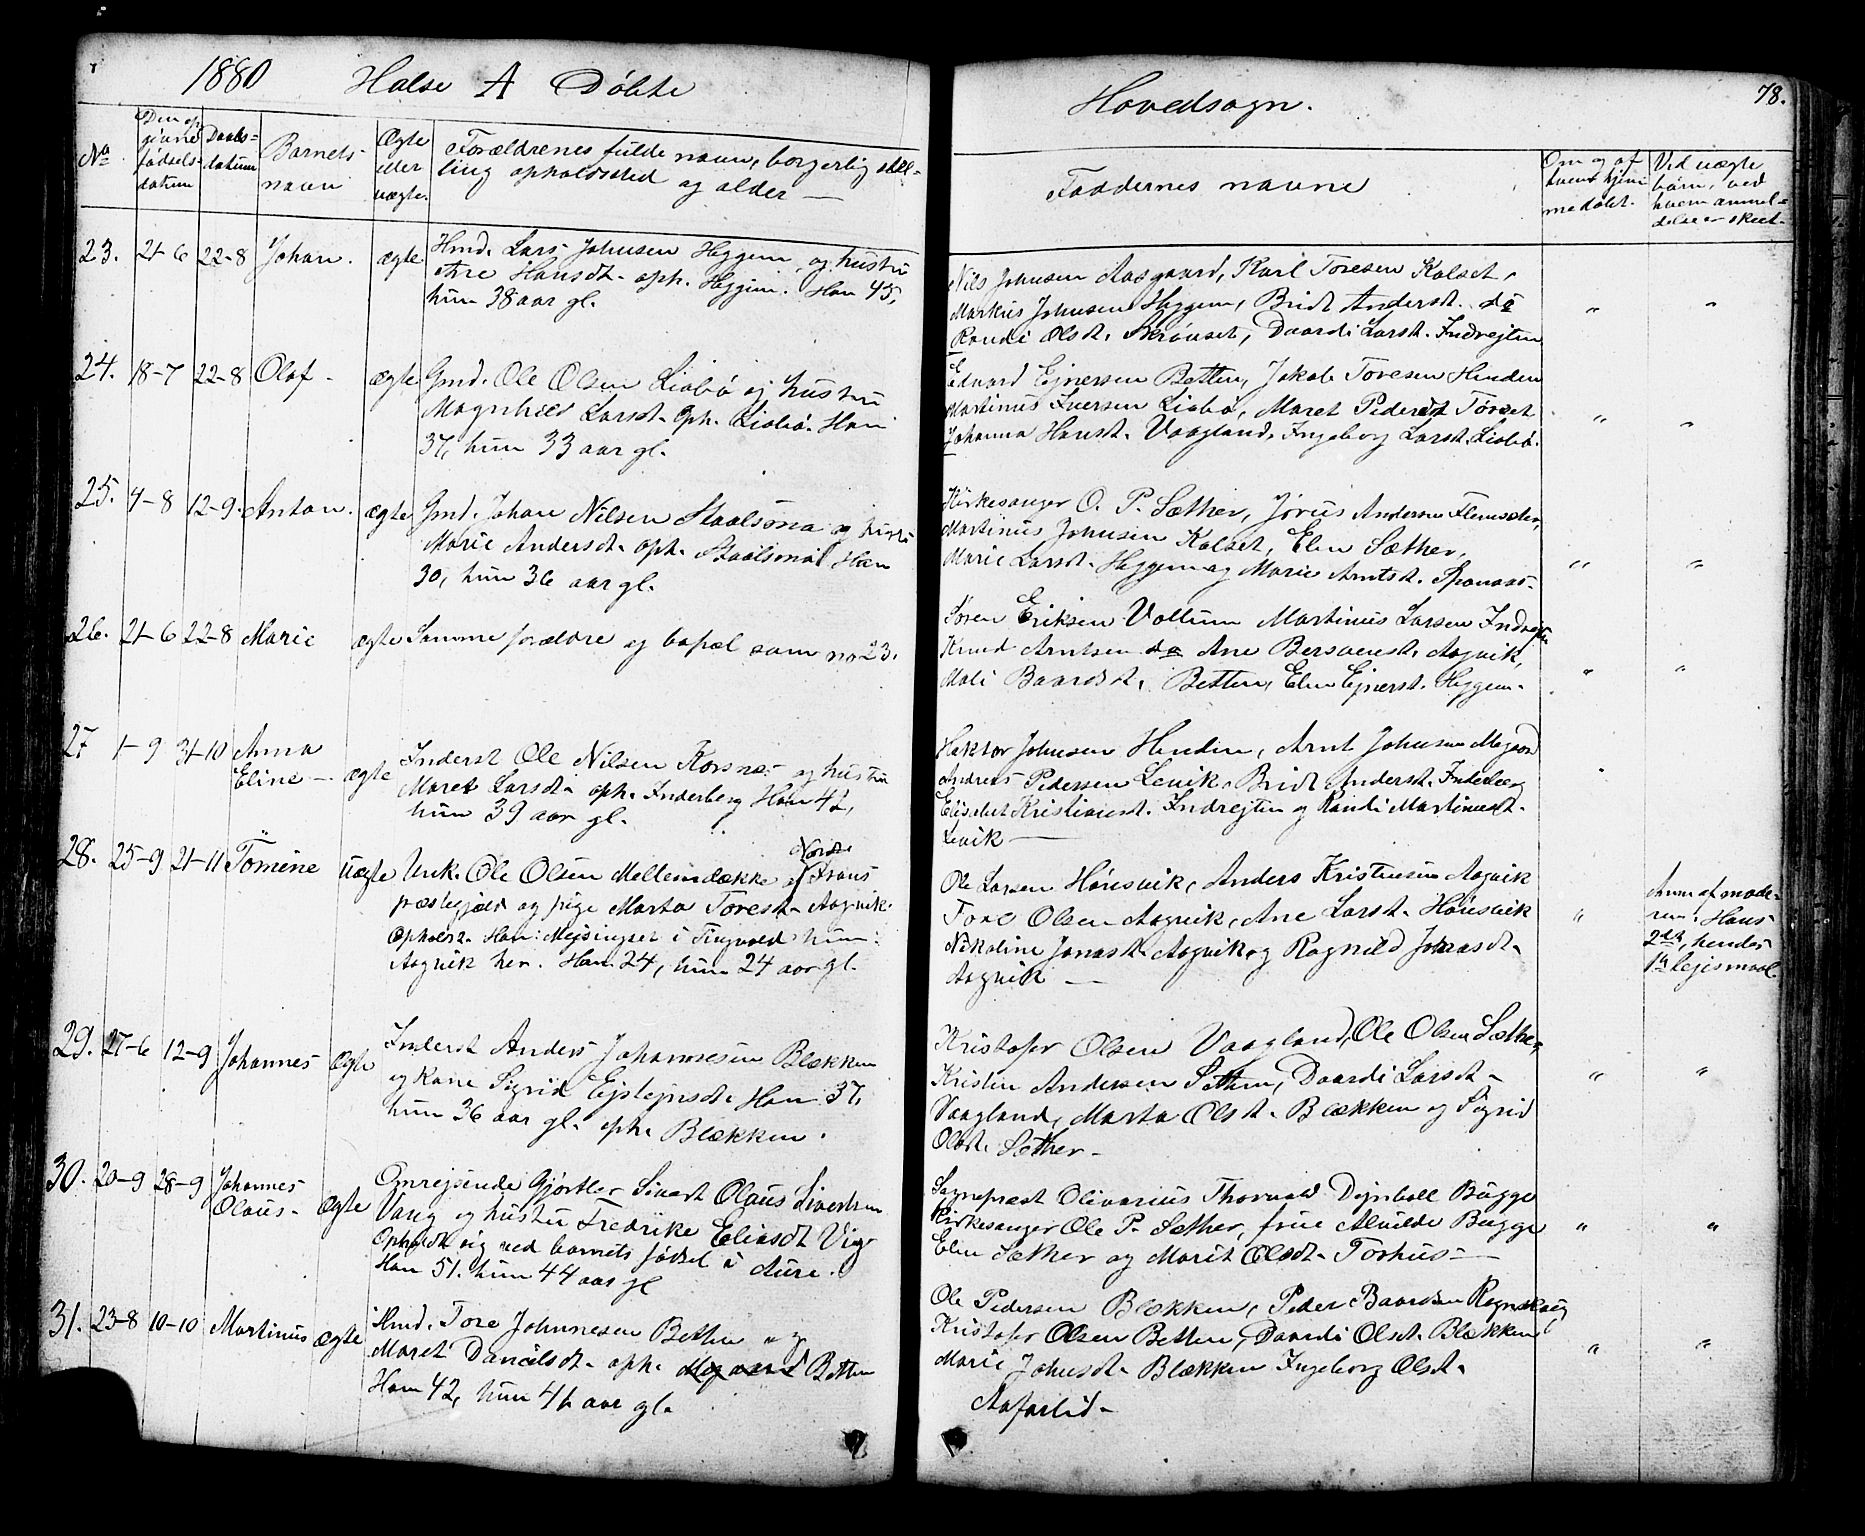 1880 Halse A Döbte
Hovedsogn.
78.
No
Den op
givne
fødsels-
datum
Daabs-
datum
Barnets-
navn
Ægte
eller
uægte.
Forældrenes fulde navn, borgerlig stil-
ling opholdssted og alder —
Faddernes navne
Om og af
hvem hjem
medöbt.
Ved uægte
børn, ved
hvem anmel-
delse er skeet.
23. 21-6 22-8 Johan. ægte Hmd. Lars Johnsen Heggem, og hustru
Ane Hansdt. oph. Heggem. Han 45,
hun 38 aar gl.
Nils Johnsen Aasgaard, Karl Toresen Kalset,
Markus Johnsen Heggem, Brit Andersdt. do
Randi Olsdt. Skrönset, Daardi Larsdt. Indrejten
24. 18-7 22-8 Olaf - ægte Gmd. Ole Olsen Lisbö og hustru
Magnhild Larsdt. oph. Lisbö. Han
37, hun 33 aar gl.
Edvard Ejnersen Betten, Jakob Toresen Henden
Martinus Iversen Lisbö, Maret Pedersdt Torset
Johanna Hansdt. Vaagland, Ingeborg Larsdt. Lisbö.
25. 4-8 12-9. Anton. ægte Gmd. Johan Nilsen Staalsmo og hustru
Marie Andersdt. oph. Staalsmo Han
30, hun 36 aar gl.
Kirkesanger O. P. Sæther, Jörus Andersen
Martinus Johnsen Kalset, Elen Sæther,
Marie Larsdt. Heggem og Marie Arntsdt.
26. 21-6 22-8 Marie ægte Samme forældre og bopæl som no 23.
Sören Eriksen Vollum Martinus Larsen Indrejten
Knud Arntsen do Ane Bersvensdt. Aagvik,
Mali Baardsdt. Betten, Elen Ejnersdt. Heggem.
27 1-9 31-10 Anna
Eline — ægte Inderst Ole Nilsen Korsnes og hustru
Maret Larsdt. oph. Inderberg Han 42,
hun 39 aar gl.
Hektor Johnsen Henden, Arnt Johnsen Megaard
Andreas Pedersen Levik, Brit Andersdt. Inderberg
Elisabet Kristiansdt. Indrejten og Randi Martinusdt.
Levik —
28. 25-9 21-11 Tomine uægte Unk. Ole Olsen Mellemdække af Nordre
præstegjeld og pige Marta Toresdt. Aagvik.
Opholdt. Han: Mejsingset i Tingvold hun:
Aagvik her. Han 24, hun 24 aar gl.
Ole Larsen Hönsvik, Anders Kristensen Aagvik
Tore Olsen Aagvik, Ane Larsdt. Hönsvik
Nikoline Jonasdt. Aagvik og Ragnild Jonasdt.
Aagvik —
Anm af mode-
ren: Hans
2det, hendes
1te lejermaal.
29. 27-6 12-9 Johannes ægte Inderst Anders Johannesen Blækken
og kone Sigrid Ejstejnsdt. Han 37,
hun 36 aar gl. oph. Blækken.
Kristofer Olsen Vaagland, Ole Olsen Sæther,
Kristen Andersen Sæther, Daardi Larsdt.
Vaagland, Marta Olsdt. Blækken og Sigrid
Olsdt. Sæther —
30. 20-9 28-9 Johannes
Olaus - ægte Omrejsende Gjörtler Sivert Olaus Sivertsen
Vang og hustru Fredrike Eliasdt Vig
Opholdt sig ved barnets födsel i Aure.
Han 51. hun 44 aar gl
Sognepræst Olivarius Thorvald Dejnboll Bugge
Kirkesanger Ole P. Sæther, frue Alvilde Bugge
Elen Sæther og Marit Olsdt. Torhus —
31. 23-8 10-10 Martinus ægte Hmd. Tore Johnnesen Betten og
Maret Danielsdt. oph. Megaard Betten
Han 42, hun 41 aar gl.
Ole Pedersen Blækken, Peder Baardsen Rognskaug
Kristofer Olsen Betten, Daardi Olsdt. Blækken
Marie Johnsdt. Blækken Ingeborg Olsdt.
Aafarlid —